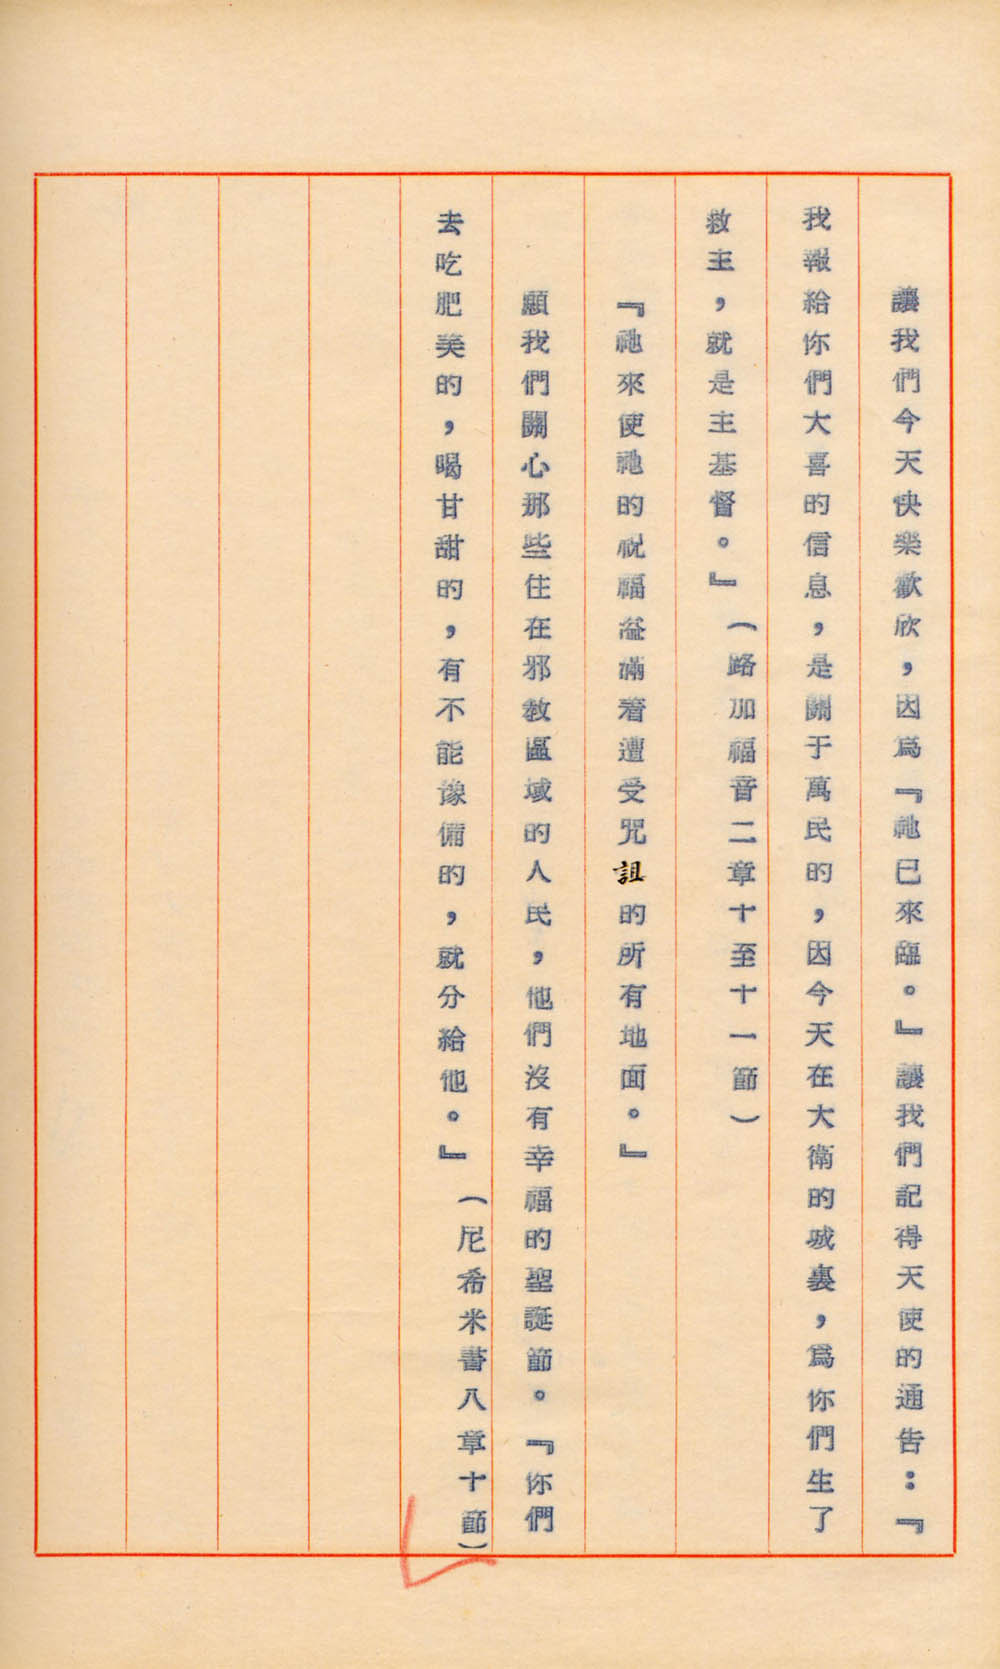 讓我們今天快樂歡欣，因爲『祂已來臨。』讓我們記得天使的通告：『
我報給你們大喜的信息，是關于萬民的，因今天在大衛的城裏，爲你們生了
救主，就是主基督。』（路加福音二章十至十一節）
『祂來使祂的祝福溢滿着遭受咒詛的所有地面。』
願我們關心那些住在邪教區域的人民，他們沒有幸福的聖誕節。『你們
去吃肥美的，喝甘甜的，有不能豫備的，就分給他。』（尼希米書八章十節）